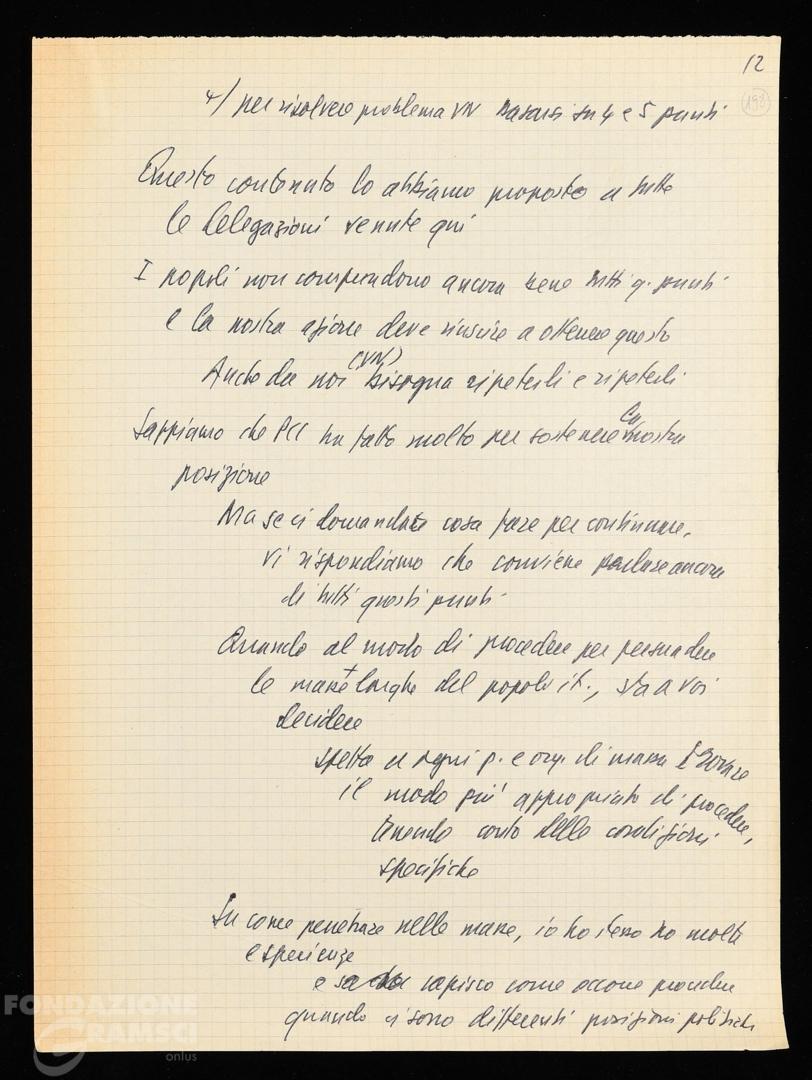 12
198
4/ per risolvere problema VN basarsi su 4 e 5 punti
Questo contenuto lo abbiamo proposto a tutte
le delegazioni venute qui
I popoli non comprendono ancora bene tutti q. punti
e la nostra azione deve riuscire a ottenere questo
(VN)
Anche da noi bisogna ripeterli e ripeterli
Sappiamo che PCI ha fatto molto per sostenere la nostra
posizione
Ma se ci domandate cosa fare per continuare,
vi rispondiamo che conviene parlare ancora
di tutti questi punti
Quando al modo di procedere per persuadere
le masse + larghe del popolo it., sta a voi
decidere
spetta a ogni p. e org. di massa trovare
il modo più appropriato di procedere,
tenendo conto delle condizioni
specifiche
Su come penetrare nelle masse, io ho molta
esperienza
e capisco come occorre procedere
quando ci sono differenti posizioni politiche
FONDAZIONE
GRAMSCI
onlus